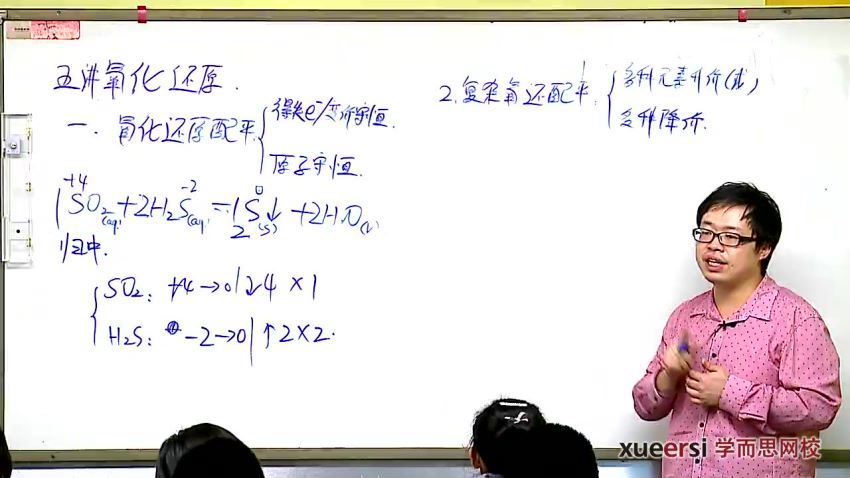 五讲氧化还原.
一. 氧化还原配平
得失e⁻/变价守恒.
原子守恒.
+4 -2 0
SO₂(aq)+2H₂S(aq)=S↓(s)+2H₂O(l)
归中.
SO₂: +4→0 ↓4 ×1
H₂S: -2→0 ↑2×2.
2.复杂氧还配平.
多种元素升价(或)
多种降价.
xueersi 学而思网校